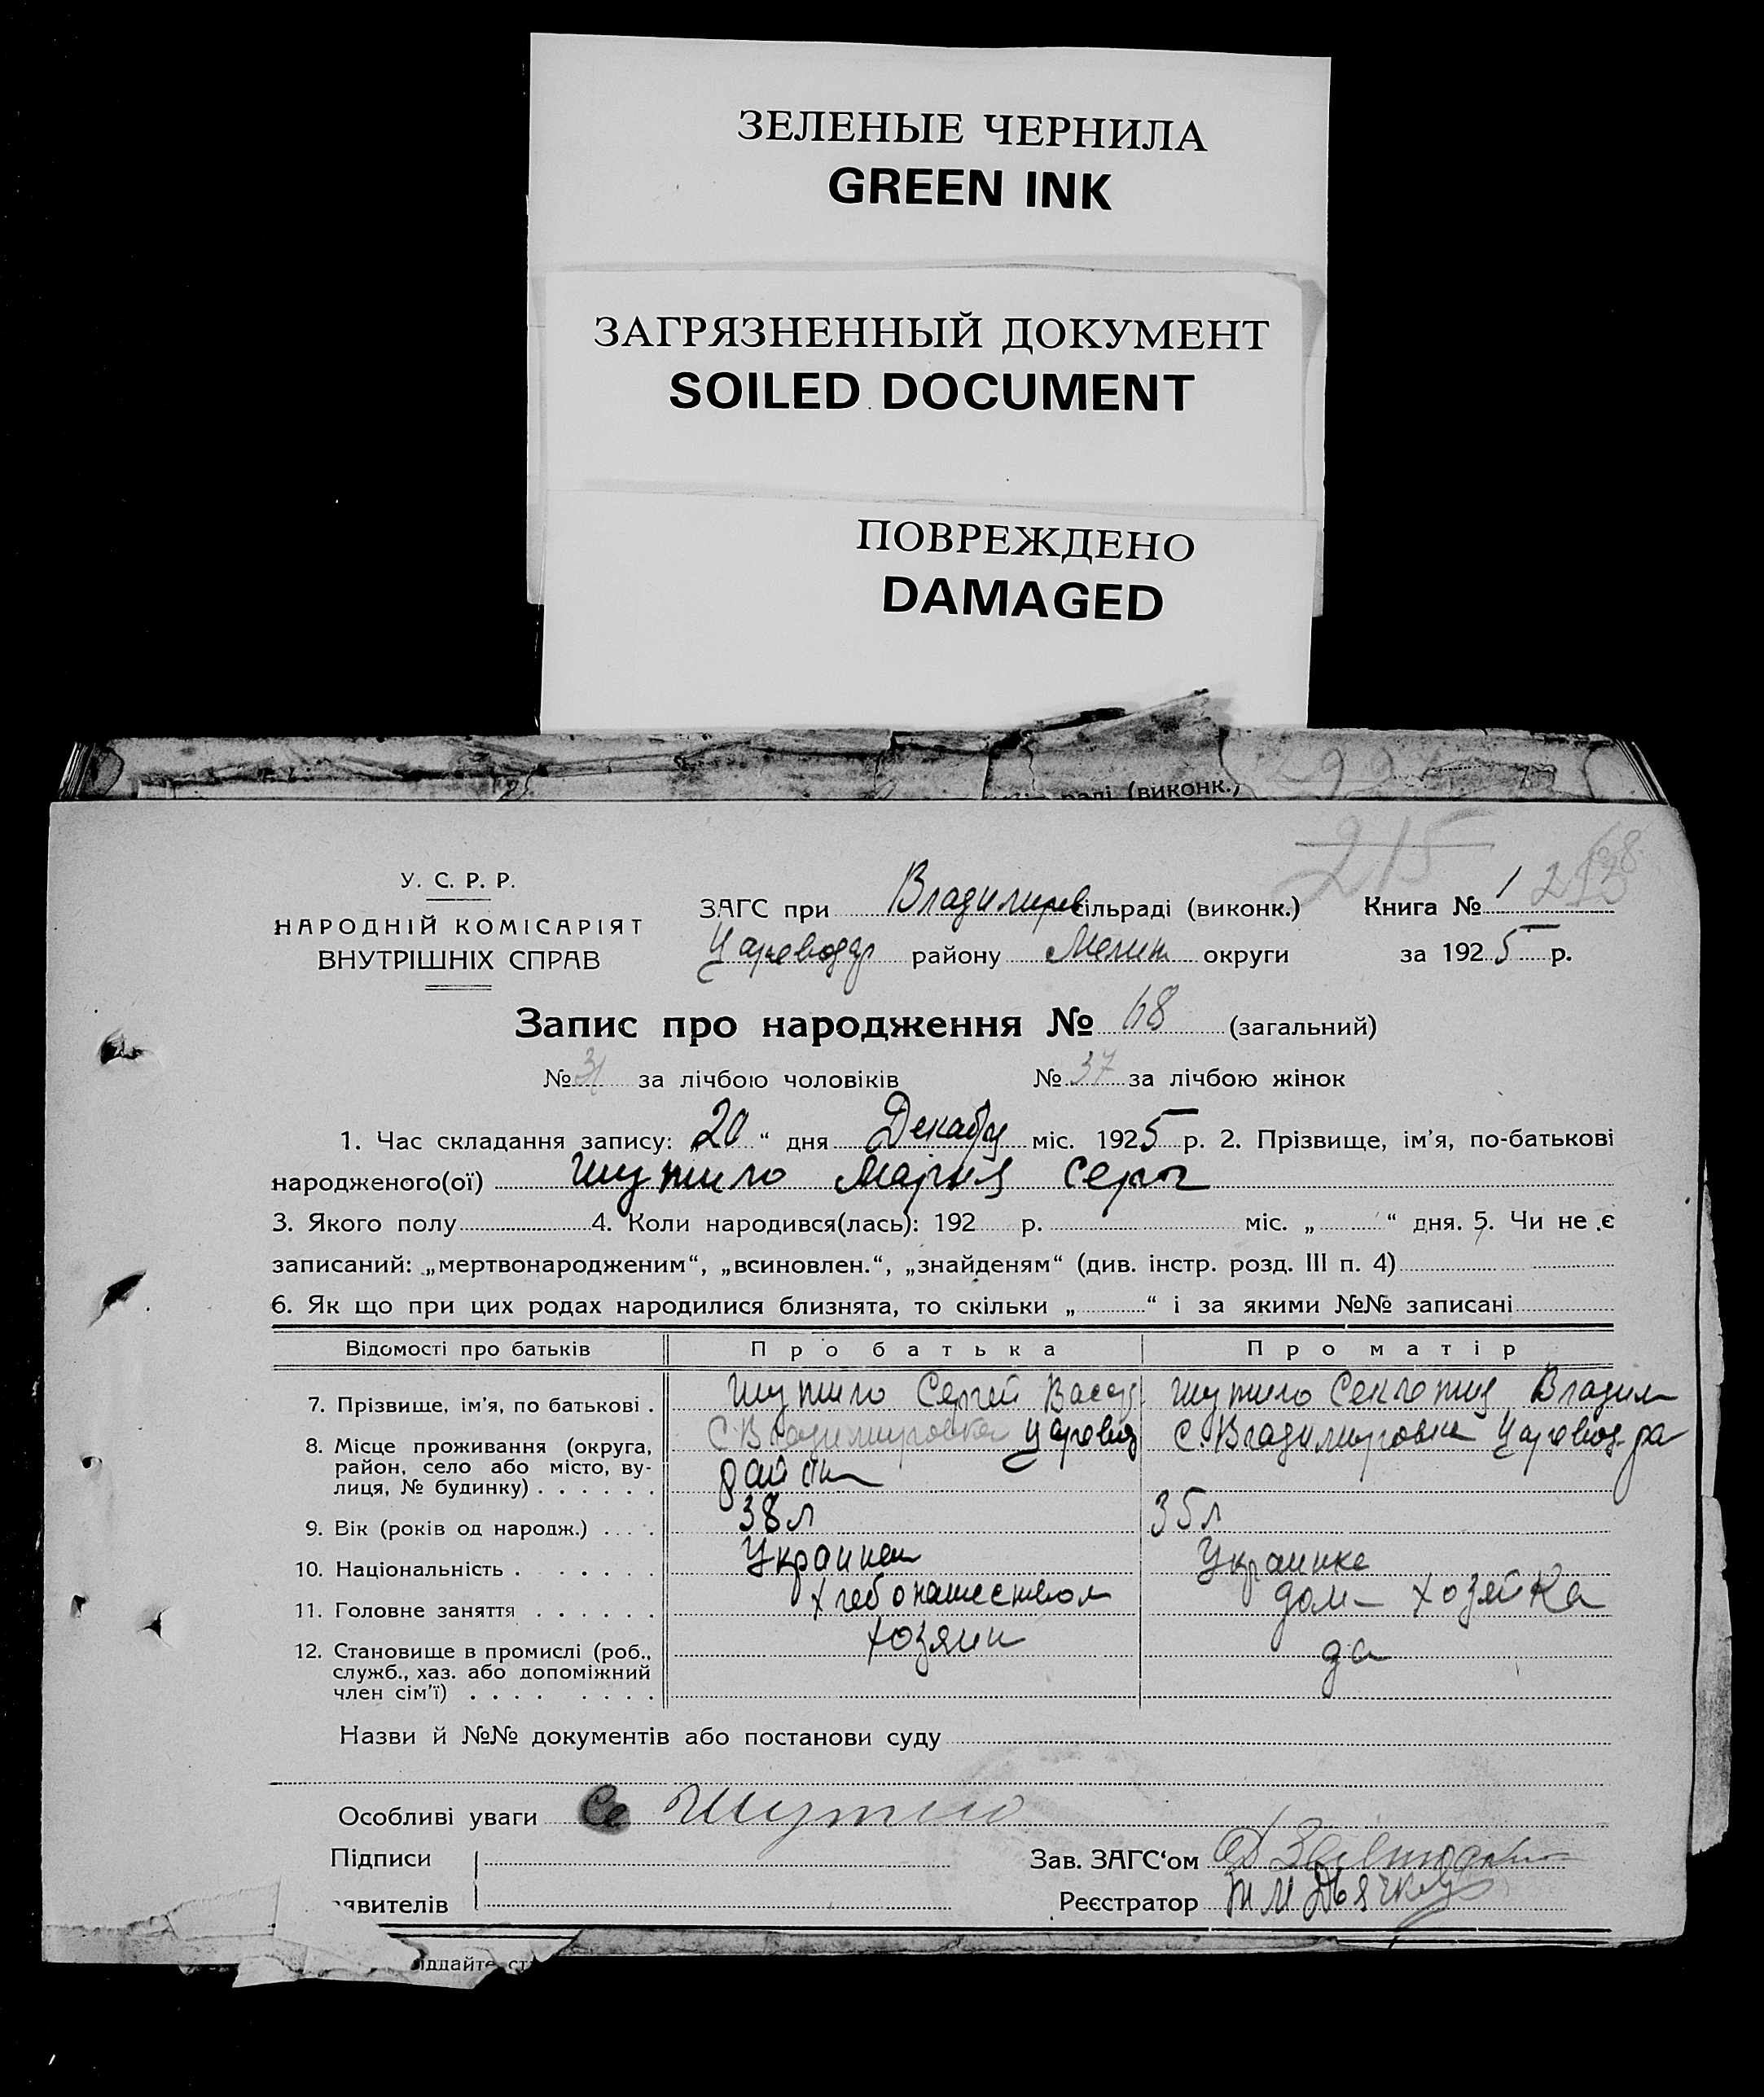 ЗЕЛЕНЫЕ ЧЕРНИЛА
GREEN INK
ЗАГРЯЗНЕННЫЙ ДОКУМЕНТ
SOILED DOCUMENT
ПОВРЕЖДЕНО
DAMAGED
(виконк.)
215
У. С. Р. Р.
НАРОДНІЙ КОМІСАРІЯТ
ВНУТРІШНІХ СПРАВ
ЗАГС при Владимиров сільраді (виконк.) Книга № 1
району округи за 1925 р.
Запис про народження № 68 (загальний)
№ 31 за лічбою чоловіків № 37 за лічбою жінок
1. Час складання запису: „20“ дня Декабря міс. 1925 р. 2. Прізвище, ім'я, по-батькові
народженого(ої) Шутило Мария Серг
3. Якого полу 4. Коли народився(лась): 192 р. міс. „ “ дня. 5. Чи не є
записаний: „мертвонародженим“, „всиновлен.“, „знайденям“ (див. інстр. розд. III п. 4)
6. Як що при цих родах народилися близнята, то скільки „ “ і за якими №№ записані
Відомості про батьків Про батька Про матір
7. Прізвище, ім'я, по батькові . Шутило Сергей Шутило Владим
8. Місце проживання (округа, район, село або місто, вулиця, № будинку) . . . . . . С. Владимировка С. Владимировка
9. Вік (років од народж.) . . . . 38 л 35 л
10. Національність . . . . . . Украинец Украинка
11. Головне заняття . . . . . . Хлебопашеством дом- хозяйка
12. Становище в промислі (роб., служб., хаз. або допоміжний член сім'ї) . . . . . . . . хозяин да
Назви й №№ документів або постанови суду
Особливі уваги Се Шутило
Підписи Зав. ЗАГС'ом
явителів Реєстратор